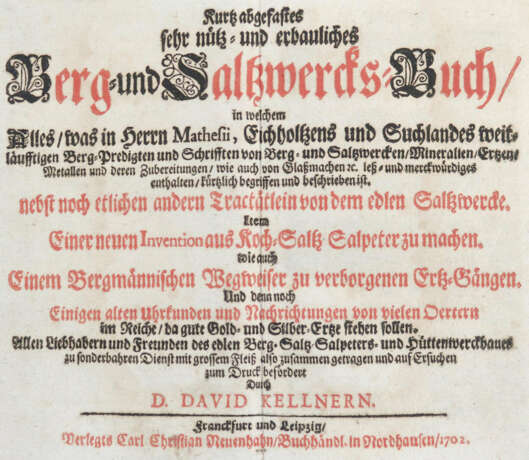 Kurtz abgefastes
sehr nütz- und erbauliches
Berg- und Saltzwercks-Buch/
in welchem
Alles/ was in Herrn Mathesii, Eichholtzens und Suchlandes weit-
läufftigen Berg-Predigten und Schrifften von Berg- und Salzwercken/ Mineralien/ Ertzen/
Metallen und deren Zubereitungen/ wie auch von Glaßmachen ꝛc. leß- und merckwürdiges
enthalten/ kürtzlich begriffen und beschrieben ist.
nebst noch etlichen andern Tractätlein von dem edlen Saltzwercke.
Item
Einer neuen Invention aus Koch-Saltz Salpeter zu machen.
wie auch
Einem Bergmännischen Wegweiser zu verborgenen Ertz-Gängen.
Und denn noch
Einigen alten Uhrkunden und Nachrichtungen von vielen Oertern
im Reiche/ da gute Gold- und Silber-Ertze stehen sollen.
Allen Liebhabern und Freunden des edlen Berg- Saltz- Salpeters- und Hüttenwerckbaues
zu sonderbahren Dienst mit grossem Fleiß also zusammen getragen und auf Ersuchen
zum Druck befördert
Durch
D. DAVID KELLNERN.
Franckfurt und Leipzig/
Verlegts Carl Christian Neuenhahn/ Buchhändl. in Nordhausen/ 1702.